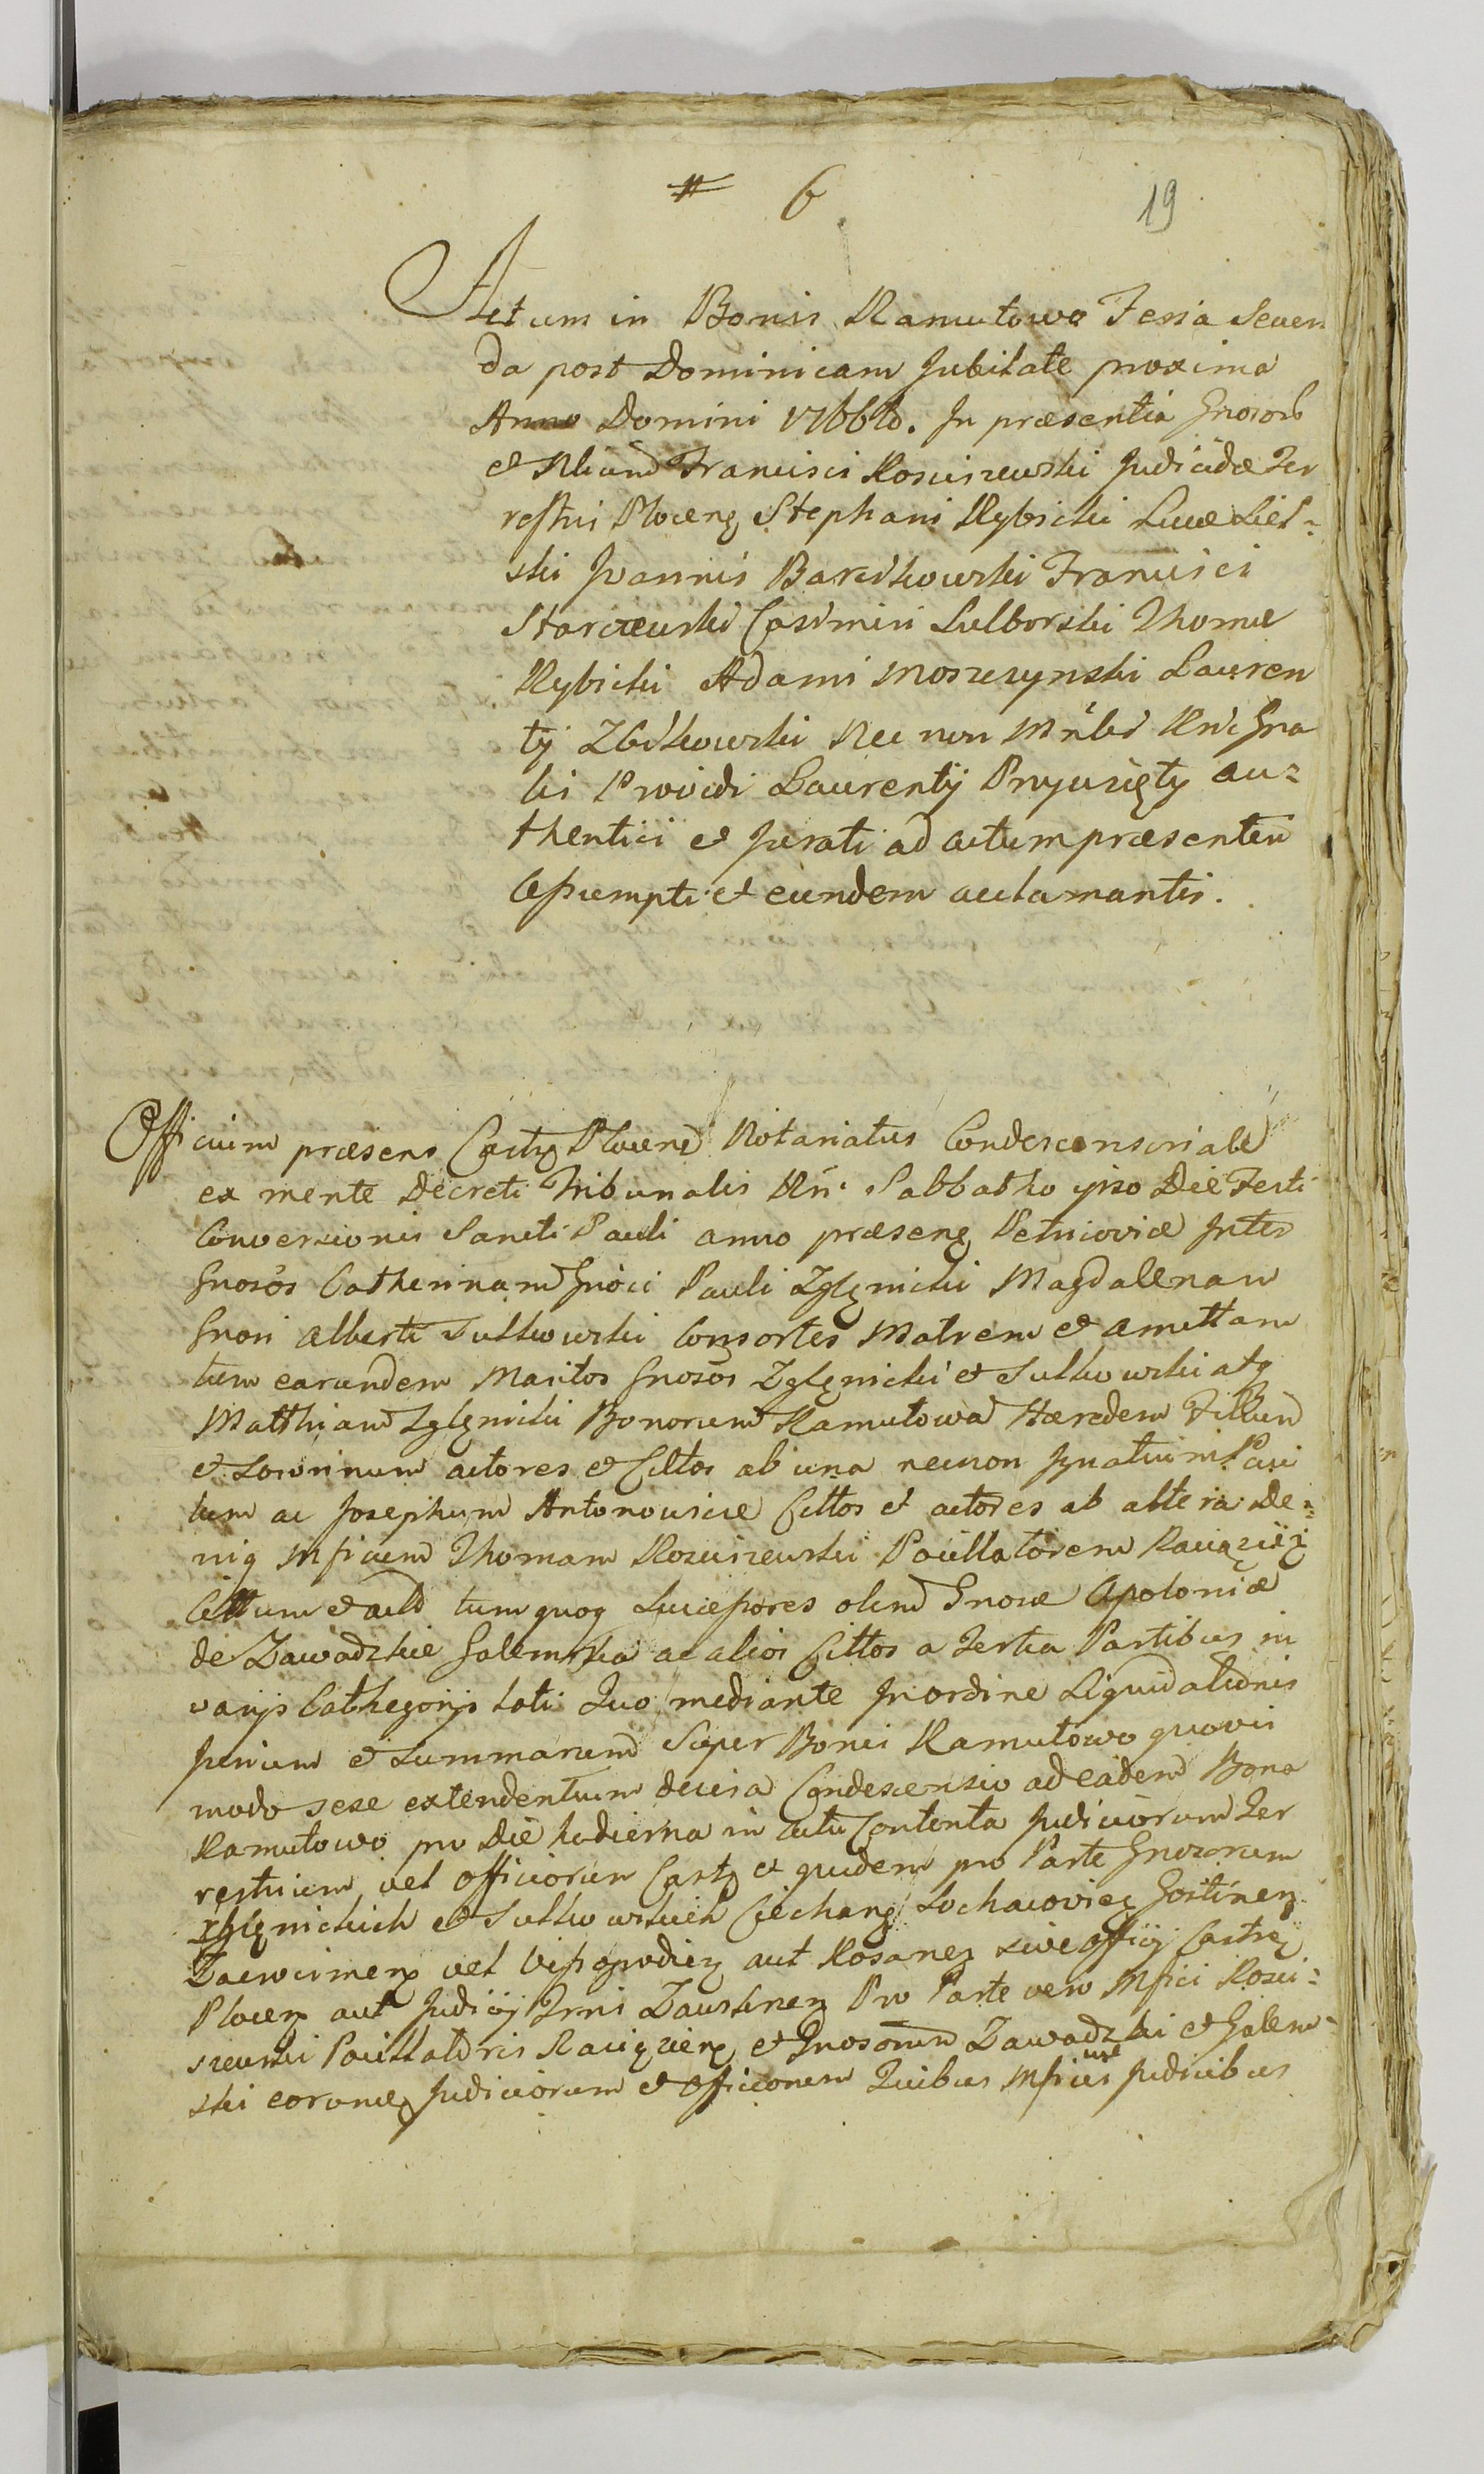 # 6 19
Actum in Bonis Ramutowo Feria Secun
da post Dominicam Jubilate proxima
Anno Domini In præsentia Gnosorū
et Francisci Kosciszewski Judicis Ter
restris Plocens Stephani Rybicki Lucæ
ski Joannis Barcikowski Francisci
Starczewski Casimiri Lelborski Thomæ
Rybicki Adami Moszczynski Lauren
tij Zbikowski Nec non Mnlis Rni Gna
lis Providi Laurentij Przyuszęty au=
thentici et Jurati ad actum præsentem
assumpti et eundem acclamantis.
Officium præsens Castr Plocens Notariatus Condescensoriale
ex mente Decreti Tribunalis Rni Sabbatho ipso Die Festi
Conversionis Sancti Pauli anno præsenq Petricoviæ Inter
Gnosos Catherinam Gnosi Pauli Zglęnicki Magdalenam
Gnosi Alberti Sutkowski Consortes Matrem et amittam
tum earundem Maritos Gnosos Zglęnicki et Sutkowski atq
Matthiam Zglęnicki Bonorum Ramutowa Hæredem Filium
et Sororinum actores et Cittos ab una necnon Ignatium
tum ac Josephum Antonowicze Cittos et actores ab altera De=
niq Mficum Thomam Kosciszewski Pocillatorem Raciązięz
Cittum et tum quoq Successores olim Gnosæ Apoloniæ
de Zawadzkie Golemska ac alios Cittos a tertia Partibus in
varijs Cathegorijs loti Quo mediante In ordine Liquidationis
Jurium et Summarum Super Bonis Ramutowo quovis
modo sese extendentium decisa Condescensio ad eadem Bona
Ramutowo pro Die hodierna in actu Contenta Judiciorum Ter
restrium vel Officiorum Castr et quidem pro Parte Gnosorum
Zglęnickich et Sutkowskich Ciechanq Sochacovieq Gostinenq
Zacrocimenq vel Visogrodieq aut Rosanenq sive Officij Castrenq
Plocenq aut Judicij Trris Zauskrnenq Pro Parte vero Mfici Kosci=
szewski Pocillatoris Raciązienq et Gnosorum Zawadzki et Golem=
ski eorumq Judiciorum et Officiorum Quibus Mficus Judicibus